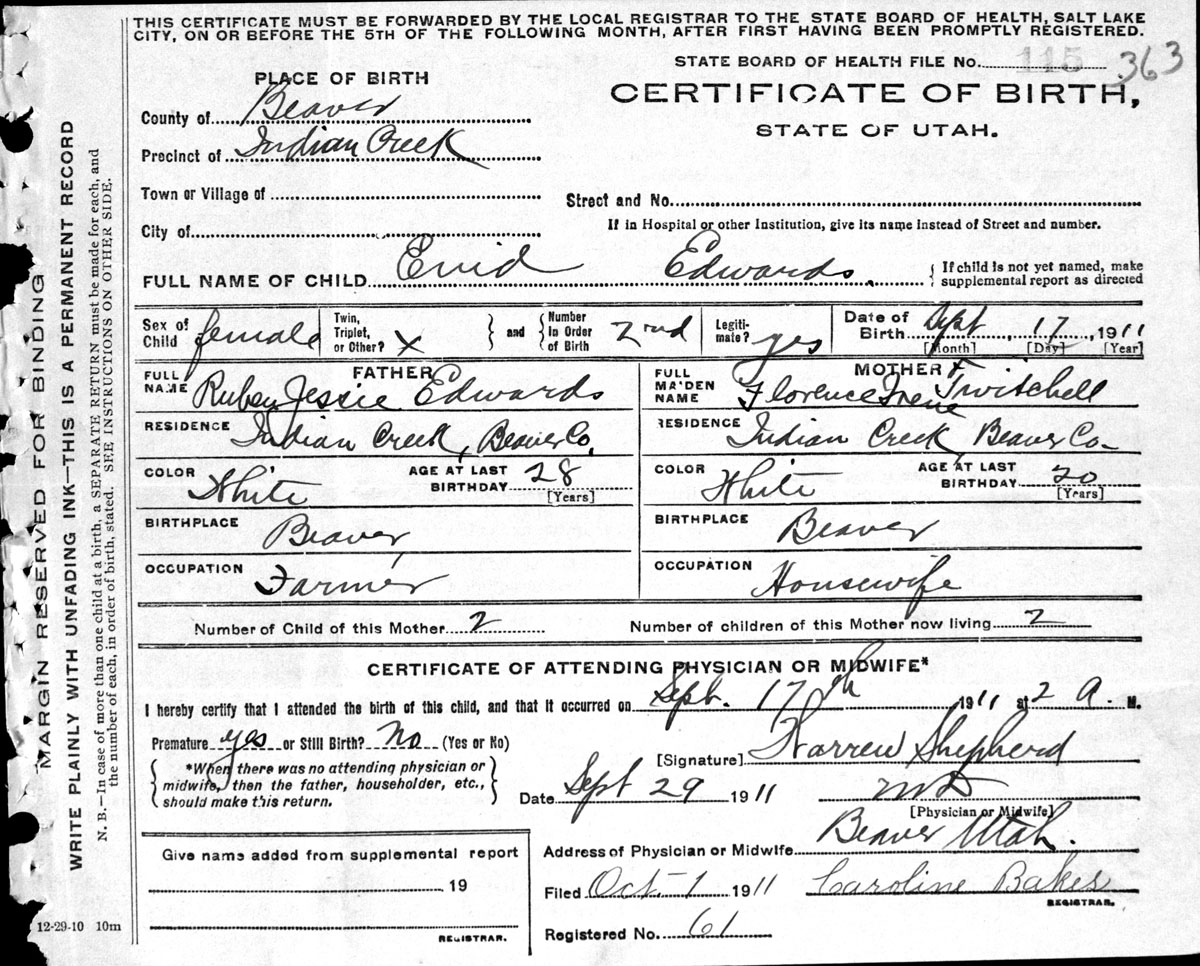 THIS CERTIFICATE MUST BE FORWARDED BY THE LOCAL REGISTRAR TO THE STATE BOARD OF HEALTH, SALT LAKE
CITY, ON OR BEFORE THE 5TH OF THE FOLLOWING MONTH, AFTER FIRST HAVING BEEN PROMPTLY REGISTERED.
STATE BOARD OF HEALTH FILE No. 115 363
PLACE OF BIRTH
CERTIFICATE OF BIRTH,
STATE OF UTAH.
County of Beaver
Precinct of Indian Creek
Town or Village of
Street and No.
City of
If in Hospital or other Institution, give its name instead of Street and number.
FULL NAME OF CHILD Enid Edwards { If child is not yet named, make
supplemental report as directed
Sex of Child female
Twin, Triplet, or Other? X } and { Number In Order of Birth 2nd
Legitimate? yes
Date of Birth Sept 17, 1911
[Month] [Day] [Year]
FATHER
FULL NAME Ruben Jessie Edwards
RESIDENCE Indian Creek, Beaver Co.
COLOR White
AGE AT LAST BIRTHDAY 28 [Years]
BIRTHPLACE Beaver
OCCUPATION Farmer
MOTHER
FULL MAIDEN NAME Florence Irene Twitchell
RESIDENCE Indian Creek, Beaver Co.
COLOR White
AGE AT LAST BIRTHDAY 20 [Years]
BIRTHPLACE Beaver
OCCUPATION Housewife
Number of Child of this Mother 2 Number of children of this Mother now living 2
CERTIFICATE OF ATTENDING PHYSICIAN OR MIDWIFE*
I hereby certify that I attended the birth of this child, and that it occurred on Sept. 17th, 1911 at 2 A. M.
Premature yes or Still Birth? No (Yes or No)
{ *When there was no attending physician or
midwife, then the father, householder, etc.,
should make this return. }
[Signature] Warren Shepherd
Date Sept 29 1911 MD
[Physician or Midwife]
Address of Physician or Midwife Beaver Utah.
Filed Oct. 1 1911 Caroline Bakes
REGISTRAR.
Registered No. 61
Give name added from supplemental report
19
REGISTRAR.
12-29-10 10m
MARGIN RESERVED FOR BINDING
WRITE PLAINLY WITH UNFADING INK—THIS IS A PERMANENT RECORD
N. B.—In case of more than one child at a birth, a SEPARATE RETURN must be made for each, and
the number of each, in order of birth, stated. SEE INSTRUCTIONS ON OTHER SIDE.